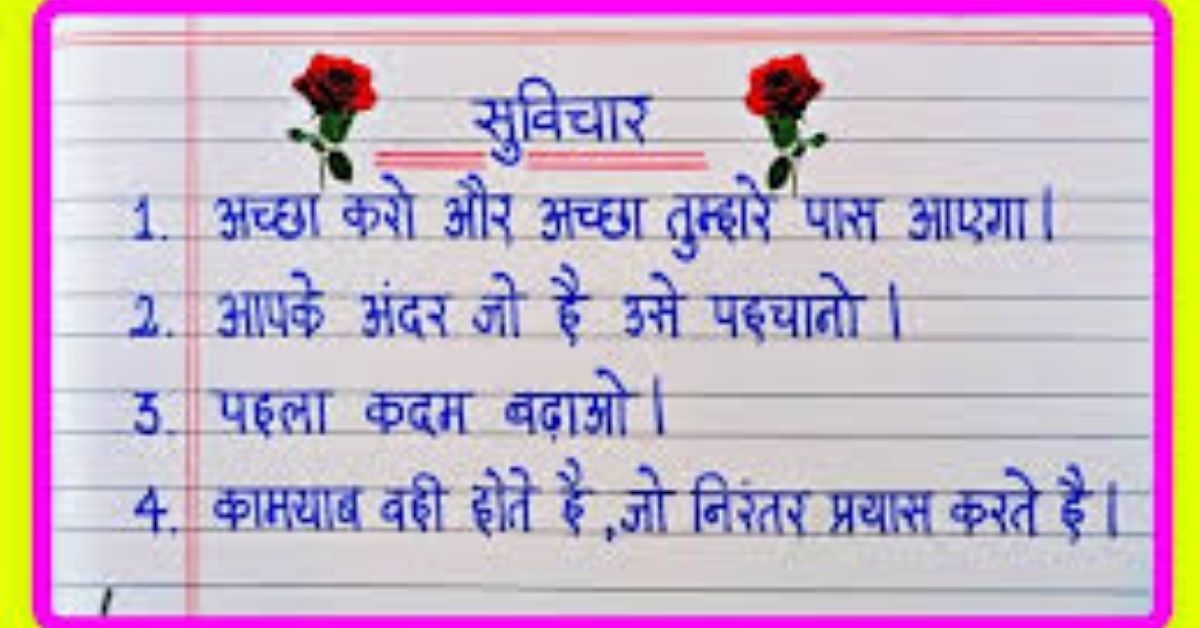 सुविचार
1. अच्छा करो और अच्छा तुम्हारे पास आएगा।
2. आपके अंदर जो है उसे पहचानो।
3. पहला कदम बढ़ाओ।
4. कामयाब वही होते है ,जो निरंतर प्रयास करते है।